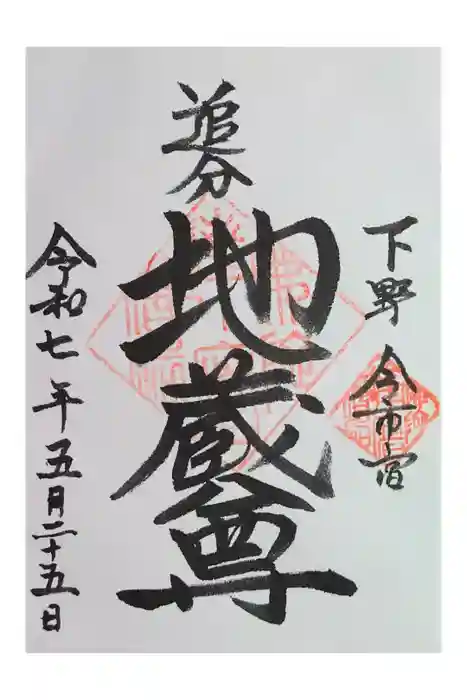 下野 今市宿
追分
地蔵尊
令和七年五月二十五日